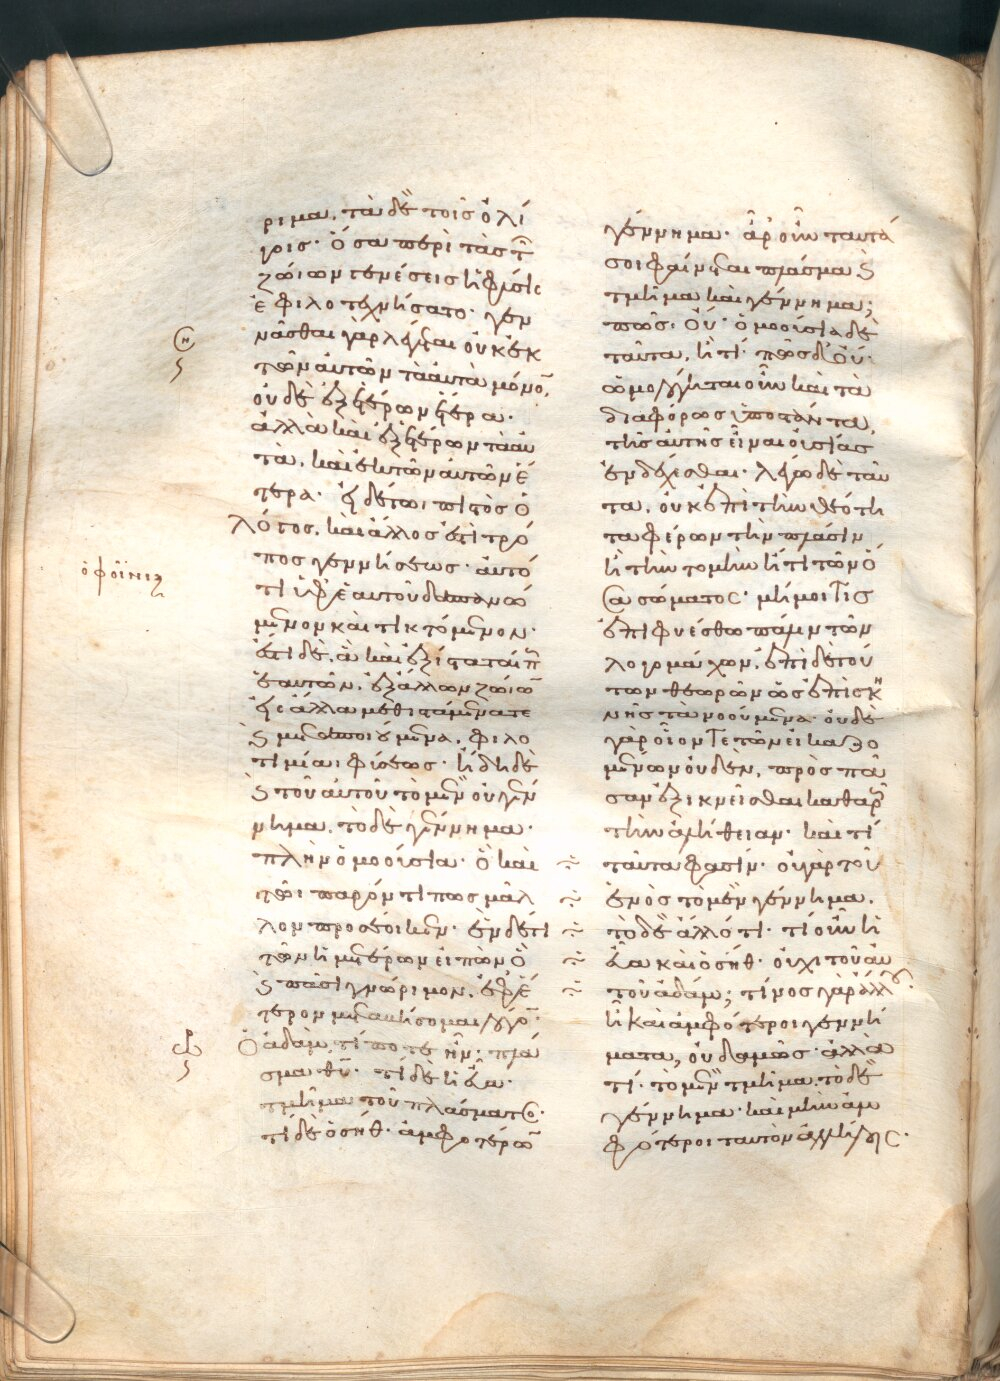 ριμα. τὰ δὲ τοῖς ὀλί
γοις· ὅσα περὶ τὰς τῶ
ζώιων γενέσεις ἡ φύσις
ἐφιλοτεχνήσατο· γεν
νᾶσθαι γὰρ λέγεται οὐκ ἐκ
τῶν αὐτῶν τὰ αὐτὰ μόνο̄,
οὐδὲ ἐξ ἑτέρων ἕτερα·
ἀλλὰ καὶ ἐξ ἑτέρων τὰ αὐ
τὰ. καὶ ἐκ τῶν αὐτῶν ἕ
τερα· εἰ δέ τωι πιστὸς ὁ
λόγος, καὶ ἄλλος ἐστὶ τρό
πος γεννήσεως· αὐτό
τι ὑφ' ἑαυτοῦ δαπανώ
μενον καὶ τικτόμενον·
ἔστι δὲ, ἃ καὶ ἐξίσταταί π̄
ἑαυτῶν, ἐξ ἄλλων ζώιω̄
εἰς ἄλλα μεθιστάμενά τε
ϗ μεταποιούμενα, φιλο
τιμίαι φύσεως· ἤδη δὲ
ϗ τοῦ αὐτοῦ τὸ μὲν οὐ γέν
νημα, τὸ δὲ γέννημα·
πλὴν ὁμοούσια· ὃ καὶ
τῶι παρόντι πως μᾶλ
λον προσέοικεν· ἓν δέ τι
τῶν ἡμετέρων εἰπὼν ὃ
ϗ πᾶσι γνώριμον, ἐφ' ἕ
τερον μεταβήσομαι λόγο̄·
Ὁ ἀδὰμ, τί ποτε ἦν; πλά
σμα θ̄ῡ· τί δὲ ἡ εὔα·
τμῆμα τοῦ πλάσματος·
τί δὲ ὁ σήθ· ἀμφοτέρω̄
ὁ φοῖνιξ
γέννημα· ἆρ' οὖν ταυτό
σοι φαίνεται πλάσμα ϗ
τμῆμα καὶ γέννημα;
πῶς· οὔ· ὁμοούσια δὲ
ταῦτα, ἢ τί· πῶς δ' οὔ·
ὡμολόγηται οὖν καὶ τὰ
διαφόρως ὑποστάντα,
τῆς αὐτῆς εἶναι οὐσίας
ἐνδέχεσθαι· λέγω δὲ ταῦ
τα, οὐκ ἐπὶ τὴν θεότη
τα φέρων τὴν πλάσιν
ἢ τὴν τομὴν ἤ τι τῶν ὅ
σα σώματος· μή μοι τὶς
ἐπιφυέσθω πάλιν τῶν
λογομάχων, ἐπὶ δὲ τού
των θεωρῶν ὡς ἐπὶ σκη
νῆς τὰ νοούμενα· οὐδὲ
γὰρ οἷον τε τῶν εἰκαζο
μένων οὐδὲν, πρὸς πᾶ
σαν ἐξικνεῖσθαι καθαρῶς
τὴν ἀλήθειαν· καὶ τί
ταῦτα φασίν· οὐ γὰρ τοῦ
ἑνὸς τὸ μὲν γέννημα.
τὸ δὲ ἄλλό τι· τί οὖν ἡ
εὔα καὶ ὁ σήθ· οὐχὶ τοῦ αὐ
τοῦ ἀδάμ; τίνος γὰρ ἄλλου·
ἢ καὶ ἀμφότεροι γεννή
ματα, οὐδαμῶς· ἀλλὰ
τί· τὸ μὲν τμῆμα, τὸ δὲ
γέννημα· καὶ μὴν ἀμ
φότεροι ταυτὸν ἀλλήλοις·